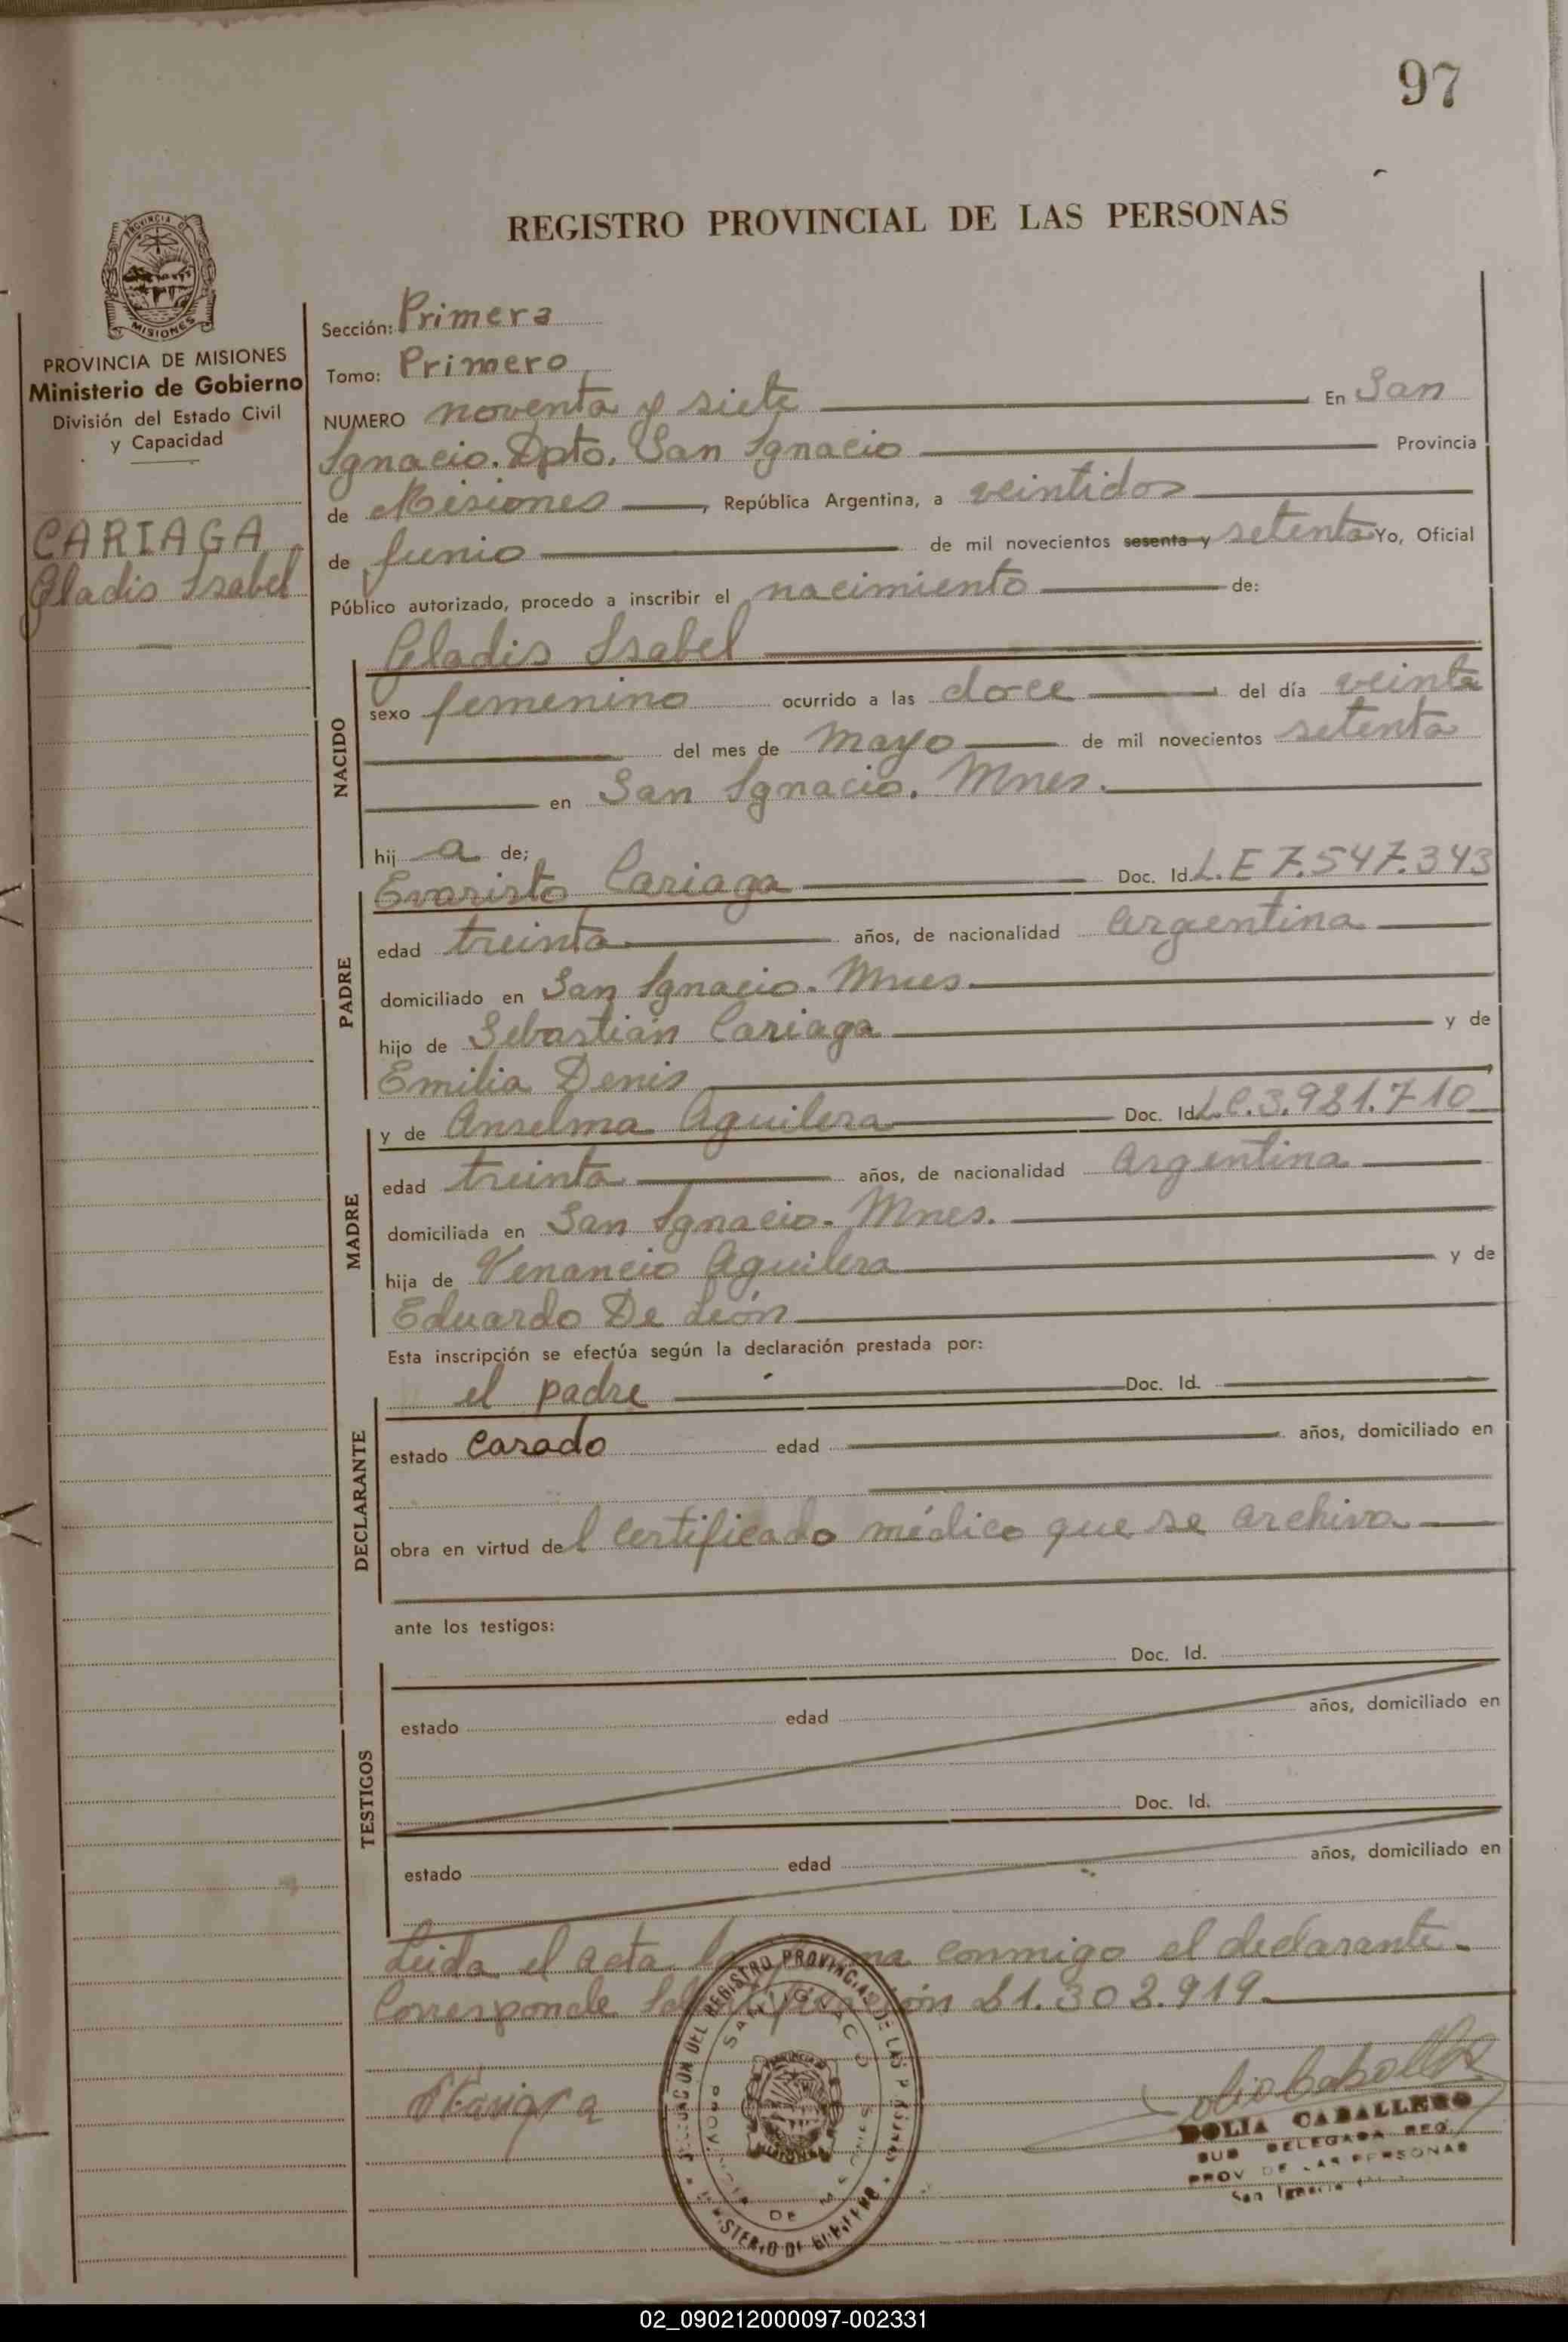 97
REGISTRO PROVINCIAL DE LAS PERSONAS
PROVINCIA
MISIONES
PROVINCIA DE MISIONES
Ministerio de Gobierno
División del Estado Civil
y Capacidad
CARIAGA
Gladis Isabel
Sección: Primera
Tomo: Primero
NUMERO noventa y siete En San
Ignacio. Dpto. San Ignacio Provincia
de Misiones, República Argentina, a veintidos
de Junio de mil novecientos sesenta y setenta Yo, Oficial
Público autorizado, procedo a inscribir el nacimiento de:
NACIDO
Gladis Isabel
sexo femenino ocurrido a las doce del día veinte
del mes de mayo de mil novecientos setenta
en San Ignacio. Mnes.
hij a de;
PADRE
Evaristo Cariaga Doc. Id. L.E 7.547.343
edad treinta años, de nacionalidad argentina
domiciliado en San Ignacio. Mnes.
hijo de Sebastián Cariaga y de
Emilia Denis
MADRE
y de Anselma Aguilera Doc. Id. L.C.3.981.710
edad treinta años, de nacionalidad argentina
domiciliada en San Ignacio. Mnes.
hija de Venancio Aguilera y de
Eduardo De León
Esta inscripción se efectúa según la declaración prestada por:
DECLARANTE
el padre Doc. Id.
estado casado edad años, domiciliado en
obra en virtud del certificado médico que se archiva
ante los testigos:
TESTIGOS
Doc. Id.
estado edad años, domiciliado en
Doc. Id.
estado edad años, domiciliado en
Leida el acta la conmigo el declarante.
Corresponde 21.302.919.
DEL REGISTRO PROVINCIAL DE LAS PERSONAS
SAN IGNACIO
PROVINCIA DE
MINISTERIO DE GOBIERNO
DOLIA CABALLERO
SUB DELEGADA REG.
PROV DE LAS PERSONAS
San Ignacio
02_090212000097-002331